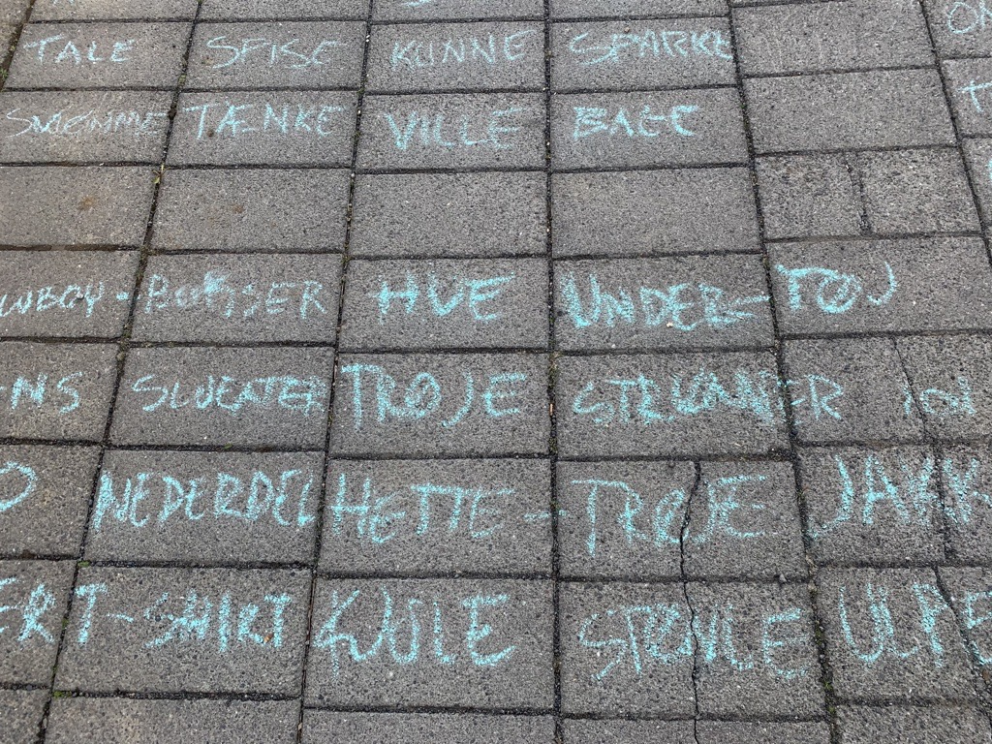 TALE SPISE KUNNE SPARKE
SVØMME TÆNKE VILLE BAGE
WBOY-BUKSER HUE UNDER-TØJ
NS SWEATER TRØJE STRØMPER
NEDERDEL HETTE-TRØJE JAKK
ERT T-SHIRT KJOLE STØVLE ULP